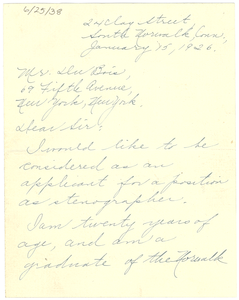 6/25/38
24 Clay Street
South Norwalk, Conn.,
January 15, 1926.
Mr. Du Bois,
69 Fifth Avenue,
New York, New York.
Dear Sir:
I would like to be
considered as an
applicant for a position
as stenographer.
I am twenty years of
age, and am a
graduate of the Norwalk